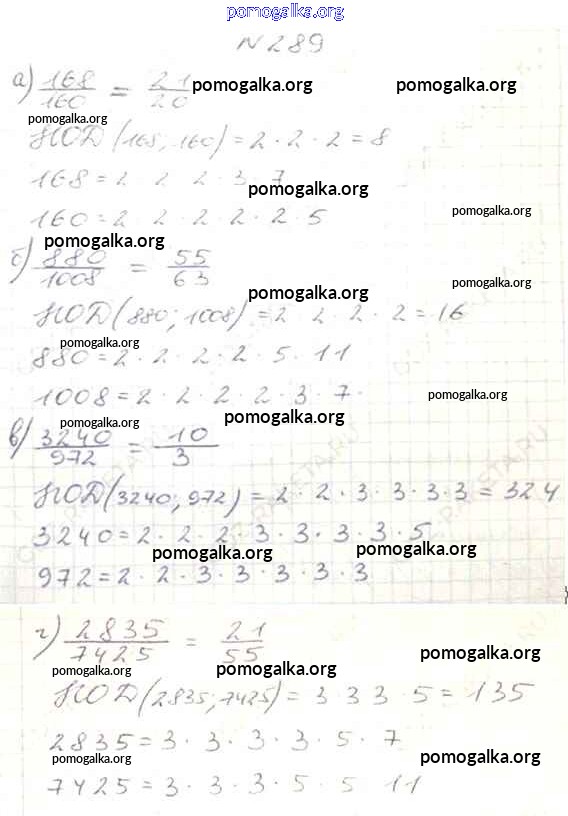 pomogalka.org
N 289
а) 168/160 = 21/20 pomogalka.org pomogalka.org
pomogalka.org
НОД (168; 160) = 2 · 2 · 2 = 8
168 = 2 2 2 · 3 · 7
pomogalka.org
160 = 2 · 2 · 2 · 2 · 2 · 5 pomogalka.org
pomogalka.org
б) 880/1008 = 55/63
pomogalka.org pomogalka.org
НОД (880; 1008) = 2 2 · 2 · 2 = 16
pomogalka.org
880 = 2 · 2 · 2 · 2 · 5 · 11
1008 = 2 · 2 · 2 · 2 · 3 · 7 · pomogalka.org
pomogalka.org pomogalka.org
в) 3240/972 = 10/3
НОД (3240; 972) = 2 · 2 · 3 · 3 · 3 · 3 = 324
3240 = 2 · 2 · 2 · 3 · 3 · 3 · 3 · 5
pomogalka.org pomogalka.org
972 = 2 · 2 · 3 · 3 · 3 · 3 · 3
г) 2835/7425 = 21/55
pomogalka.org pomogalka.org pomogalka.org
НОД (2835; 7425) = 3 3 3 · 5 = 135
2835 = 3 · 3 · 3 · 3 · 5 · 7
pomogalka.org pomogalka.org pomogalka.org
7425 = 3 · 3 · 3 · 5 · 5 11
pomogalka.org